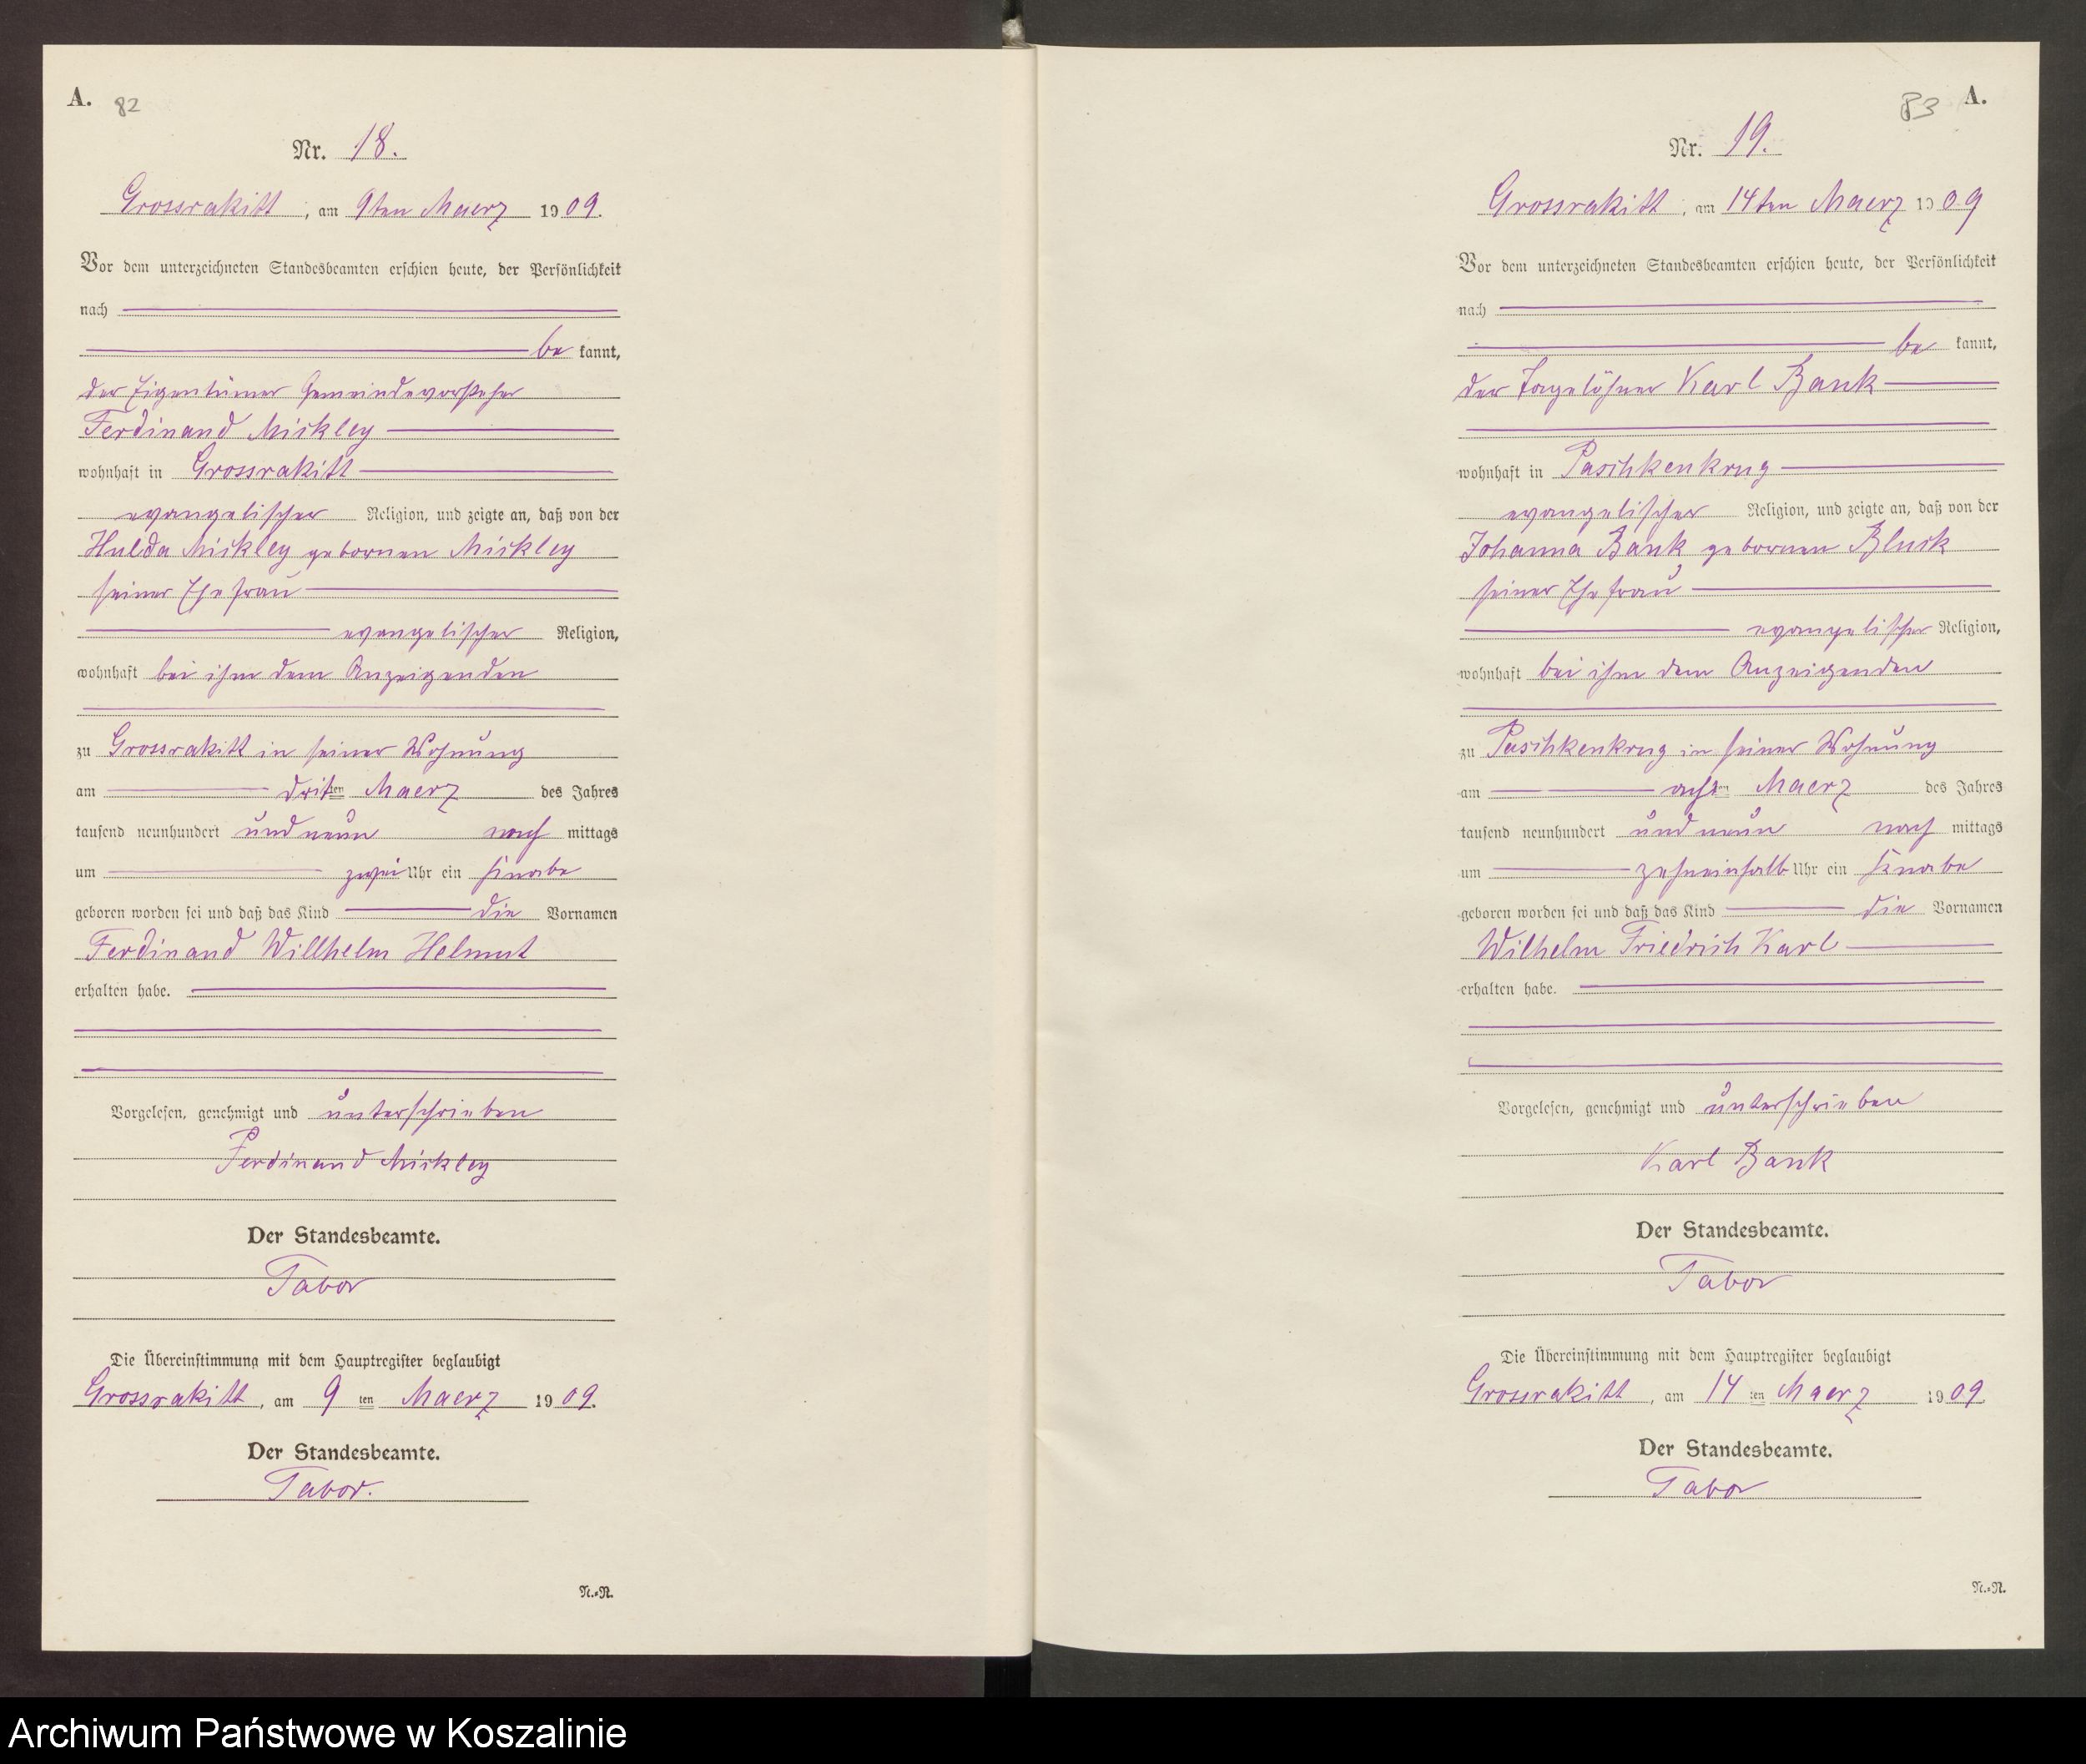 A. 82
Nr. 18.
Grossrakitt, am 9ten Maerz 1909.
Vor dem unterzeichneten Standesbeamten erschien heute, der Persönlichkeit
nach
be kannt,
der Eigentümer Gemeindevorsteher
Ferdinand Mickley
wohnhaft in Grossrakitt
evangelischer Religion, und zeigte an, daß von der
Hulda Mickley gebornen Mickley
seiner Ehefrau
evangelischer Religion,
wohnhaft bei ihm dem Anzeigenden
zu Grossrakitt in seiner Wohnung
am dritten Maerz des Jahres
tausend neunhundert und neun nach mittags
um zwei Uhr ein Knabe
geboren worden sei und daß das Kind die Vornamen
Ferdinand Willhelm Helmut
erhalten habe.
Vorgelesen, genehmigt und unterschrieben
Ferdinand Mickley
Der Standesbeamte.
Tabor
Die Übereinstimmung mit dem Hauptregister beglaubigt
Grossrakitt, am 9 ten Maerz 1909.
Der Standesbeamte.
Tabor.
N.=N.
83 A.
Nr. 19.
Grossrakitt, am 14ten Maerz 1909
Vor dem unterzeichneten Standesbeamten erschien heute, der Persönlichkeit
nach
be kannt,
der Tagelöhner Karl Bank
wohnhaft in Paschkenkrug
evangelischer Religion, und zeigte an, daß von der
Johanna Bank gebornen Bluck
seiner Ehefrau
evangelischer Religion,
wohnhaft bei ihm dem Anzeigenden
zu Paschkenkrug in seiner Wohnung
am achten Maerz des Jahres
tausend neunhundert und neun nach mittags
um zehneinhalb Uhr ein Knabe
geboren worden sei und daß das Kind die Vornamen
Wilhelm Friedrich Karl
erhalten habe.
Vorgelesen, genehmigt und unterschrieben
Karl Bank
Der Standesbeamte.
Tabor
Die Übereinstimmung mit dem Hauptregister beglaubigt
Grossrakitt, am 14 ten Maerz 1909.
Der Standesbeamte.
Tabor
N.=N.
Archiwum Państwowe w Koszalinie